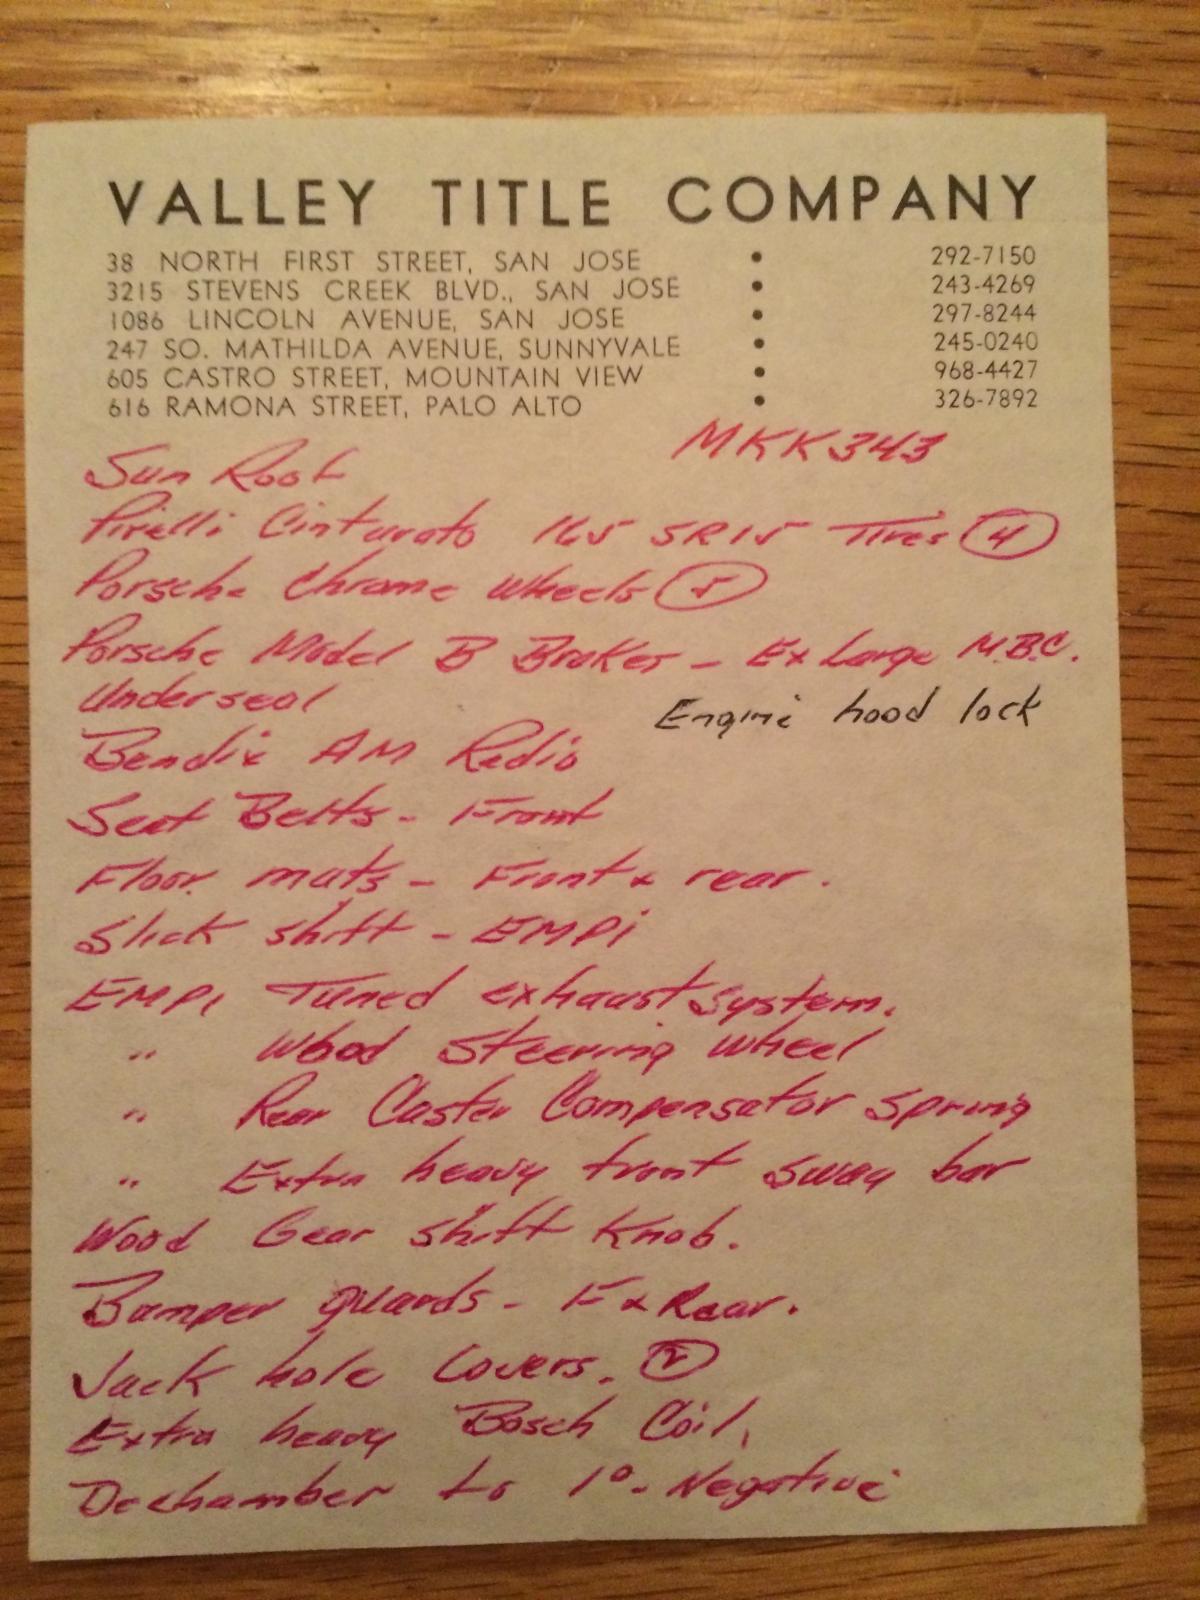 VALLEY TITLE COMPANY
38 NORTH FIRST STREET, SAN JOSE • 292-7150
3215 STEVENS CREEK BLVD., SAN JOSE • 243-4269
1086 LINCOLN AVENUE, SAN JOSE • 297-8244
247 SO. MATHILDA AVENUE, SUNNYVALE • 245-0240
605 CASTRO STREET, MOUNTAIN VIEW • 968-4427
616 RAMONA STREET, PALO ALTO • 326-7892
MKK343
Sun Roof
Pirelli Cinturato 165 SR15 Tires (4)
Porsche Chrome Wheels (5)
Porsche Model B Brakes - Ex Large M.B.C.
Underseal
Engine hood lock
Bendix AM Radio
Seat Belts - Front
Floor mats - Front & rear.
Slick shift - EMPI
EMPI Tuned exhaust system.
" Wood Steering Wheel
" Rear Caster Compensator Spring
" Extra heavy front sway bar
Wood Gear shift Knob.
Bumper guards - F & Rear.
Jack hole Covers. (2)
Extra heavy Bosch Coil,
Dechamber to 1° - Negative